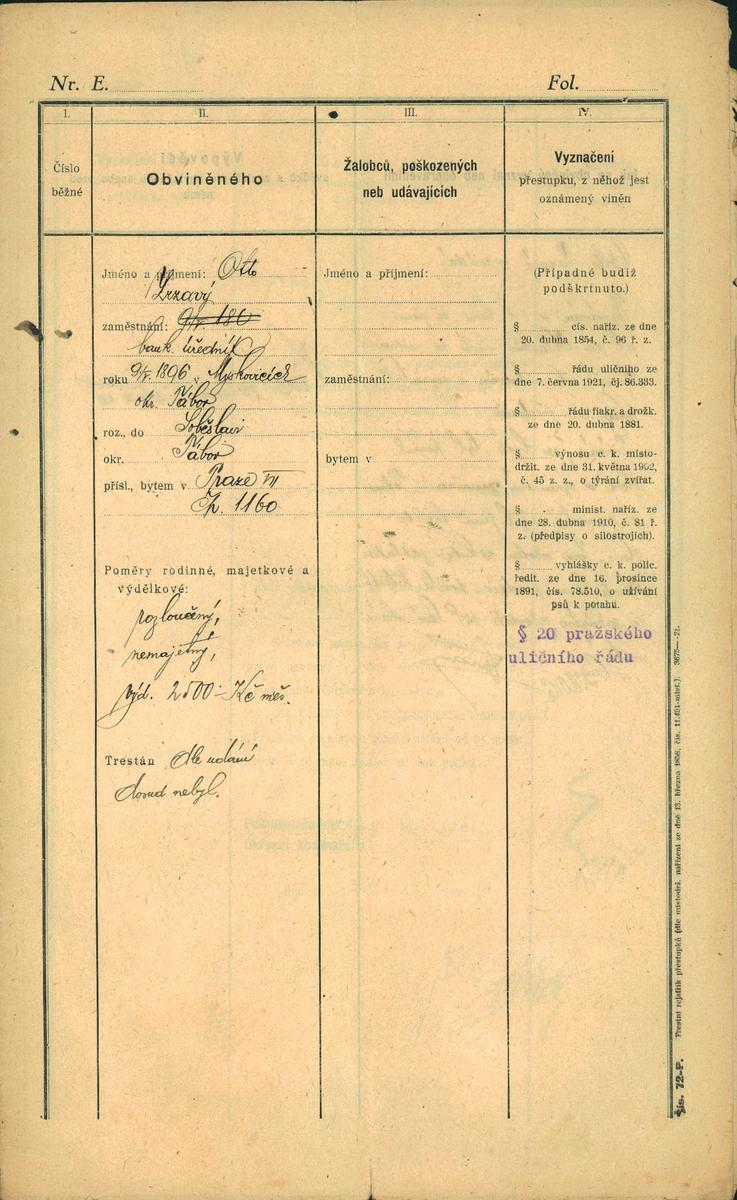 Nr. E.
Fol.
I.
II.
III.
IV.
Číslo
běžné
Obviněného
Žalobců, poškozených
neb udávajících
Vyznačení
přestupku, z něhož jest
oznámený viněn
Jméno a příjmení: Otto
Zrzavý
zaměstnání: 9/V. 186
bank. úředník
roku 9/V. 1896 v Myskovicích
okr. Tábor
roz., do Soběslavi
okr. Tábor
přísl., bytem v Praze VII
čp. 1160
Poměry rodinné, majetkové a
výdělkové:
rozloučený,
nemajetný,
výd. 2500·- Kč měs.
Trestán dle udání
dosud nebyl.
Jméno a příjmení:
zaměstnání:
bytem v
(Případné budiž
podškrtnuto.)
§ cís. naříz. ze dne
20. dubna 1854, č. 96 ř. z.
§ řádu uličního ze
dne 7. června 1921, čj. 86.333.
§ řádu fiakr. a drožk.
ze dne 20. dubna 1881.
§ výnosu c. k. místo-
držit. ze dne 31. května 1902,
č. 45 z. z., o týrání zvířat.
§ minist. naříz. ze
dne 28. dubna 1910, č. 81 ř.
z. (předpisy o silostrojích).
§ vyhlášky c. k. polic.
ředit. ze dne 16. prosince
1891, čís. 78.510, o užívání
psů k potahu.
§ 20 pražského
uličního řádu
Čís. 72-P. Trestní rejstřík přestupků (dle místodrž. nařízení ze dne 13. března 1858, čís. 11.491-míst.). 3675—21.